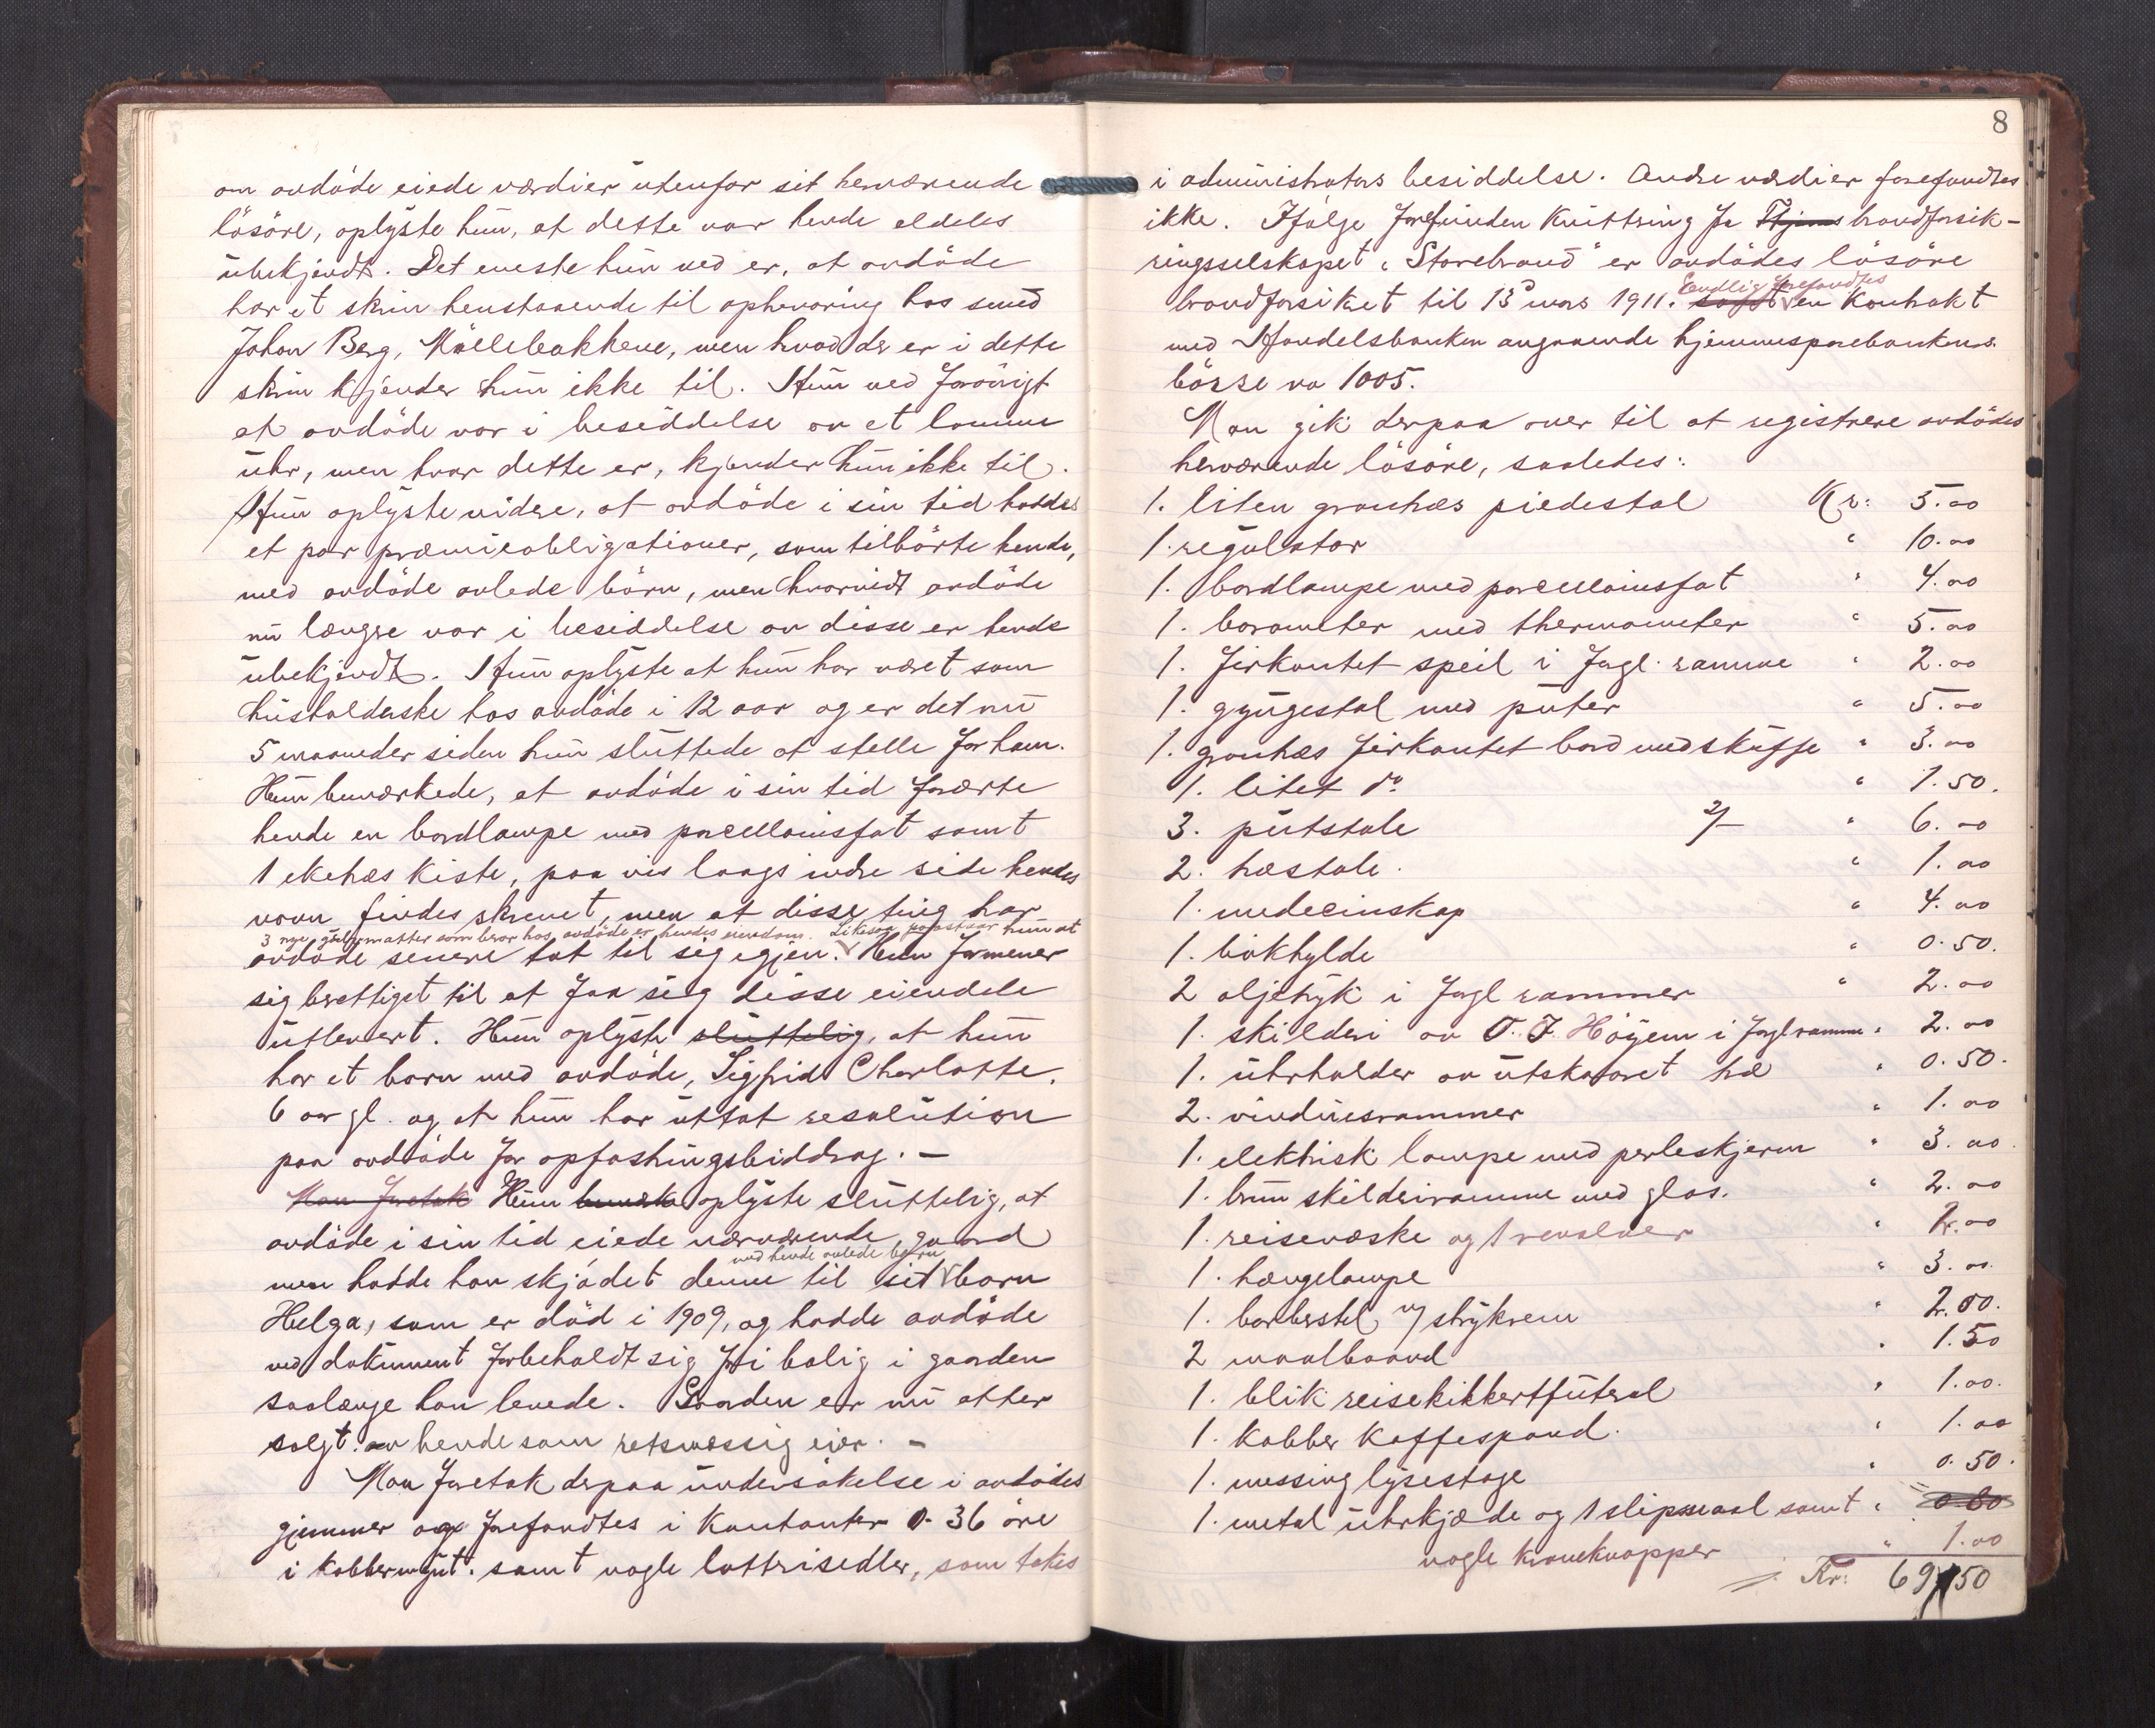 om avdøde eiede værdier utenfor sit herværende
lösöre, oplyste hun, at dette var hende aldeles
ubekjendt. Det eneste hun ved er, at avdöde
har et skrin henstaaende til opbevaring hos smed
Johan Berg, Möllebakkene, men hvad der er i dette
skrin kjender hun ikke til. Hun ved forövrigt
at avdöde var i besiddelse av et lomme
uhr, men hvor dette er, kjender hun ikke til.
Hun oplyste videre, at avdöde i sin tid hadde
et par præmieobligationer, som tilhörte hende,
med avdöde avlede börn, men hvorvidt avdöde
nu længre var i besiddelse av disse er hende
ubekjendt. Hun oplyste at hun har været som
husholderske hos avdöde i 12 aar og er det nu
5 maaneder siden hun sluttede at stelle for ham.
Hun bemærkede, at avdöde i sin tid forærte
hende en bordlampe med porcellainsfat samt
1 eketræs kiste, paa vis laags indre side hendes
navn findes skrevet, men at disse ting har
3 nye gulvmatter som beror hos avdöde er hendes eiendom. Likesaa paastaar hun at
avdöde senere tat til sig igjen. Hun formener
sig berettiget til at faa sig disse eiendele
utlevert. Hun oplyste sluttelig, at hun
har et barn med avdöde, Sigfrid Charlotte,
6 aar gl. og at hun har uttat resolution
paa avdöde for opfostringsbiddrag. —
Man foretok Hun bemærk oplyste sluttelig, at
avdöde i sin tid eiede nærværende gaard
med hende avlede barn
men hadde han skjödet denne til sit barn
Helga, som er död i 1909, og hadde avdöde
ved dokument forbeholdt sig fri bolig i gaarden
saalænge han levede. Gaarden er nu atter
solgt av hende som retsmessig eier. —
Man foretok derpaa undersökelse i avdödes
gjemmer og forefandtes i kontanter 0.36 öre
i kobbermynt. samt nogle lotterisedler, som tokes
8
i administrators besiddelse. Andre værdier forefandtes
ikke. Ifölge forefunden kvittring fra Thjems brandforsik-
ringsselskapet "Storebrand" er avdödes lösöre
Endlig forefandtes
brandforsikret til 13 mars 1911. samt en kontrakt
med Handelsbanken angaaende hjemmesparebankens
börse no 1005.
Man gik derpaa over til at registrere avdödes
herværende lösöre, saaledes:
1. liten grantræs piedestal Kr: 5.00
1. regulator " 10.00
1. bordlampe med porcellainsfat " 4.00
1. barometer med thermometer " 5.00
1. firkantet speil i forgl. ramme " 2.00
1. gyngestol med puter " 5.00
1. grantræs firkantet bord med skuffe " 3.00
1. litet do " 1.50.
3. putstole 2/- " 6.00
2. træstole. " 1.00
1. medecinskap " 4.00
1. bokhylde " 0.50.
2 oljetryk i forgl rammer " 2.00
1. skilderi av O. J. Höyem i forgl ramme " 2.00
1. uhrholder av utskaaret træ " 0.50.
2. vinduesrammer " 1.00
1. elektrisk lampe med perleskjerm " 3.00.
1. brun skilderiramme med glas. " 2.00
1. reisevæske og 1 revolver " 2.00
1. hængelampe " 3.00.
1. barberstel m/ strykrem " 2.00.
2 maalbaand " 1.50
1. blik reisekikkertfutral " 1.00.
1. kobber kaffespand. " 1.00
1. messing lysestage " 0.50.
1. metal uhrkjæde og 1 slipsnaal samt " 0.80
nogle kraveknapper " 1.00
Kr: 69.50